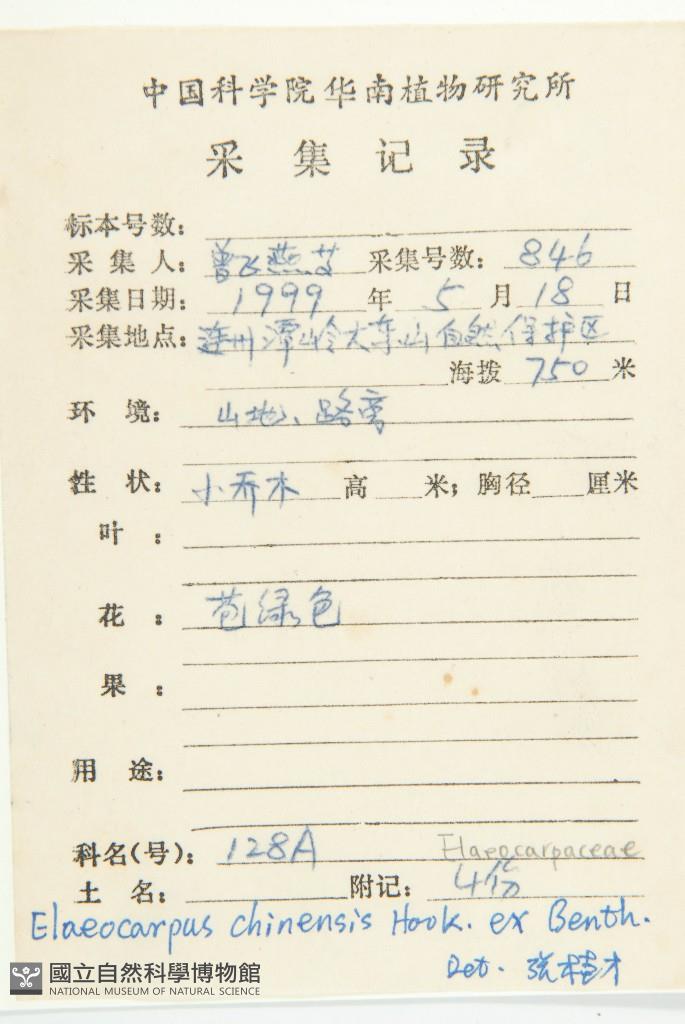 中国科学院华南植物研究所
采集记录
标本号数:
采集人: 曾飞燕等 采集号数: 846
采集日期: 1999 年 5 月 18 日
采集地点: 连州潭岭大东山自然保护区
海拨 750 米
环境: 山地、路旁
性状: 小乔木 高 米; 胸径 厘米
叶:
花: 苞绿色
果:
用途:
科名(号): 128A Elaeocarpaceae
土名: 附记: 4份
Elaeocarpus chinensis Hook. ex Benth.
Det. 张桂才
國立自然科學博物館
NATIONAL MUSEUM OF NATURAL SCIENCE